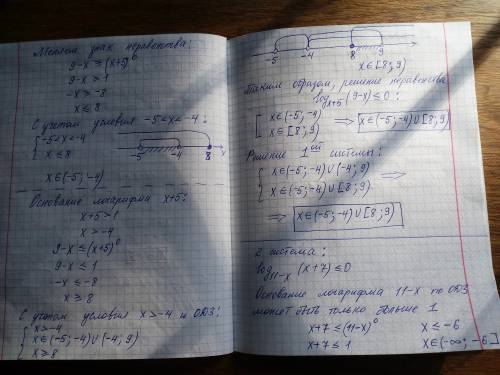 Меняем знак неравенства:
9-x ≥ (x+5)⁰
9-x ≥ 1
-x ≥ -8
x ≤ 8
С учетом условия -5<x<-4:
{ -5<x<-4
x ≤ 8
-5 -4 8 x
x∈(-5; -4)
Основание логарифма x+5:
x+5>1
x>-4
9-x ≤ (x+5)⁰
9-x ≤ 1
-x ≤ -8
x ≥ 8
С учетом условия x>-4 и ОДЗ:
{ x>-4
x∈(-5; -4)∪(-4; 9)
x ≥ 8
-5 -4 8 9
x∈[8; 9)
Таким образом, решение неравенства
log_{x+5} (9-x) ≤ 0:
[ x∈(-5; -4)
x∈[8; 9) ⟹ x∈(-5; -4)∪[8; 9)
Решение 1ой системы:
{ x∈(-5; -4)∪(-4; 9)
x∈(-5; -4)∪[8; 9) ⟹
⟹ x∈(-5; -4)∪[8; 9)
2 система:
log_{11-x} (x+7) ≤ 0
Основание логарифма 11-x по ОДЗ
может быть только больше 1
x+7 ≤ (11-x)⁰ x ≤ -6
x+7 ≤ 1 x∈(-∞; -6]